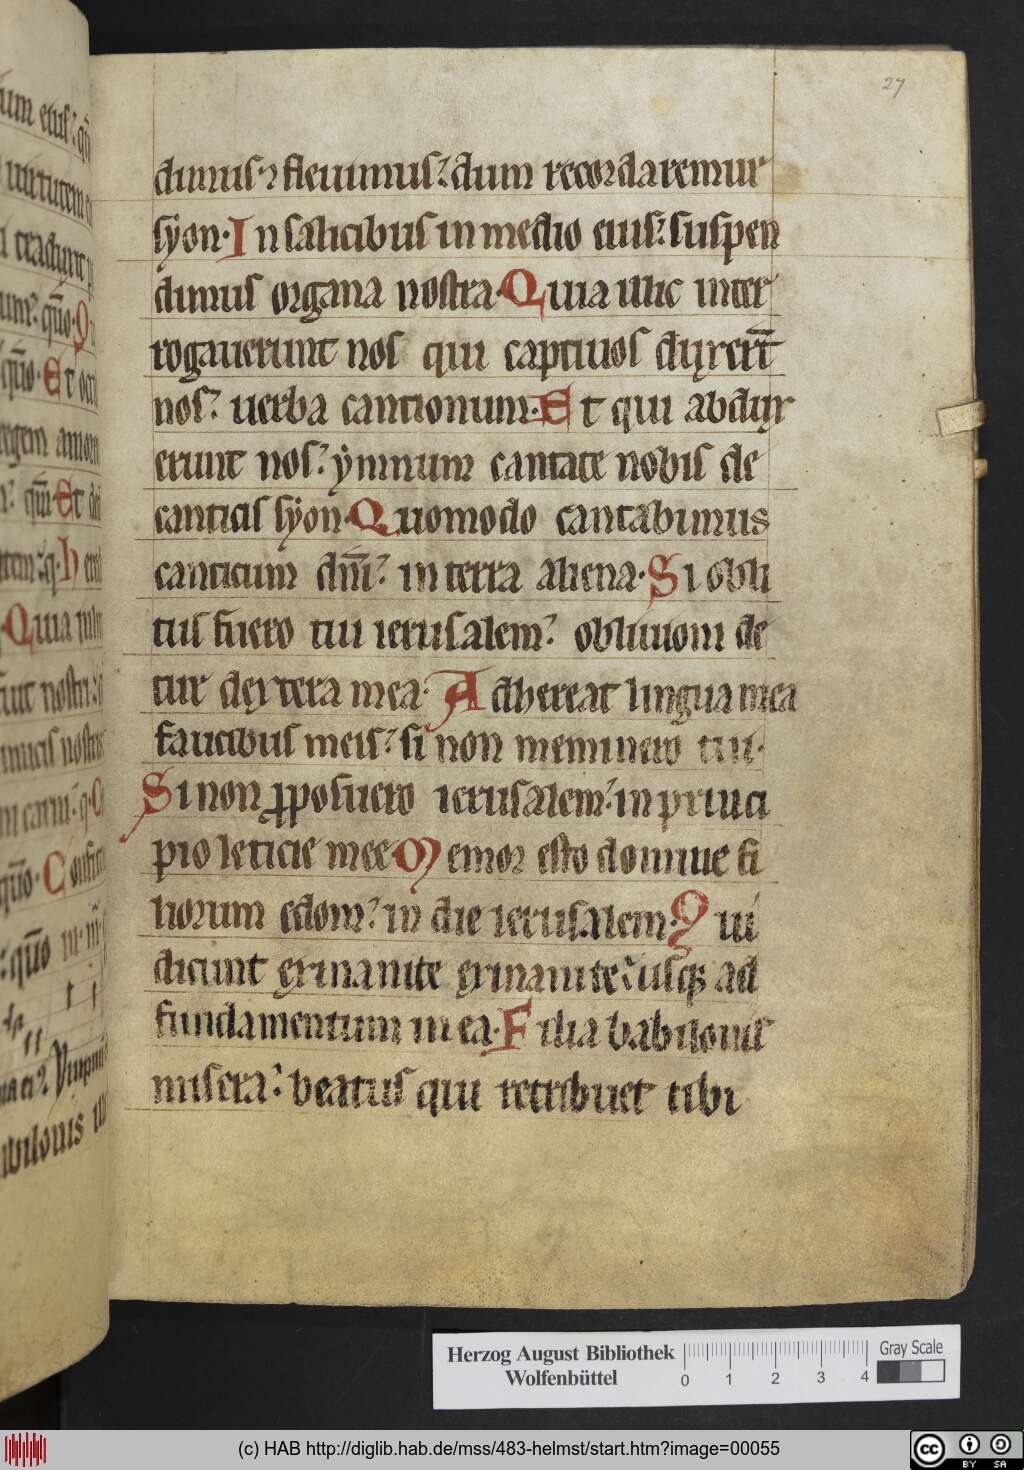 27
dimus ⁊ fleuimus: dum recordaremur
syon. In salicibus in medio eius: suspen
dimus organa nostra. Quia illic inter
rogauerunt nos qui captiuos duxert̄
nos: uerba cantionum. Et qui abdux
erunt nos: ymnum cantate nobis de
canticis syon. Quomodo cantabimus
canticum dn̄i: in terra aliena. Si obli
tus fuero tui ierusalem: obliuioni de
tur dextera mea. Adhereat lingua mea
faucibus meis: si non meminero tui.
Si non ꝓposuero ierusalem: in princi
pio leticie mee. Memor esto domine fi
liorum edom: in die ierusalem. Qui
dicunt exinanite exinanite: usqꝫ ad
fundamentum in ea. Filia babilonis
misera: beatus qui retribuet tibi
Herzog August Bibliothek
Wolfenbüttel
0 1 2 3 4
Gray Scale
(c) HAB http://diglib.hab.de/mss/483-helmst/start.htm?image=00055
cc BY SA